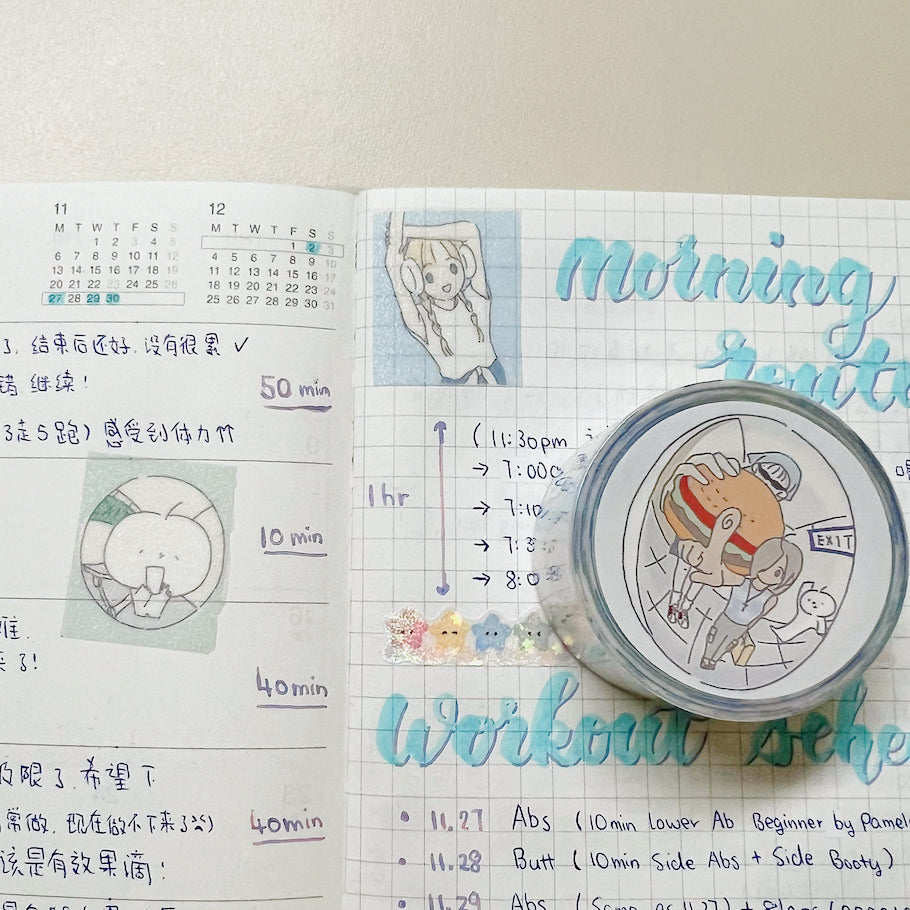 11
M T W T F S S
1 2 3 4 5
6 7 8 9 10 11 12
13 14 15 16 17 18 19
20 21 22 23 24 25 26
27 28 29 30
12
M T W T F S S
1 2 3
4 5 6 7 8 9 10
11 12 13 14 15 16 17
18 19 20 21 22 23 24
25 26 27 28 29 30 31
了, 结束后还好, 没有很累 ✓
错 继续!
50 min
3走5跑) 感受到体力↑↑
10 min
了!
40min
限了, 希望下
常做, 现在做不下来了
40min
该是有效果滴!
Morning
1hr
(11:30pm
→ 7:00
→ 7:10
→ 7:3
→ 8:0
EXIT
Workout sche
• 11.27 Abs (10min lower Ab Beginner by Pamela
• 11.28 Butt (10min Side Abs + Side Booty)
• 11.29 Abs (Same as 11.27) +